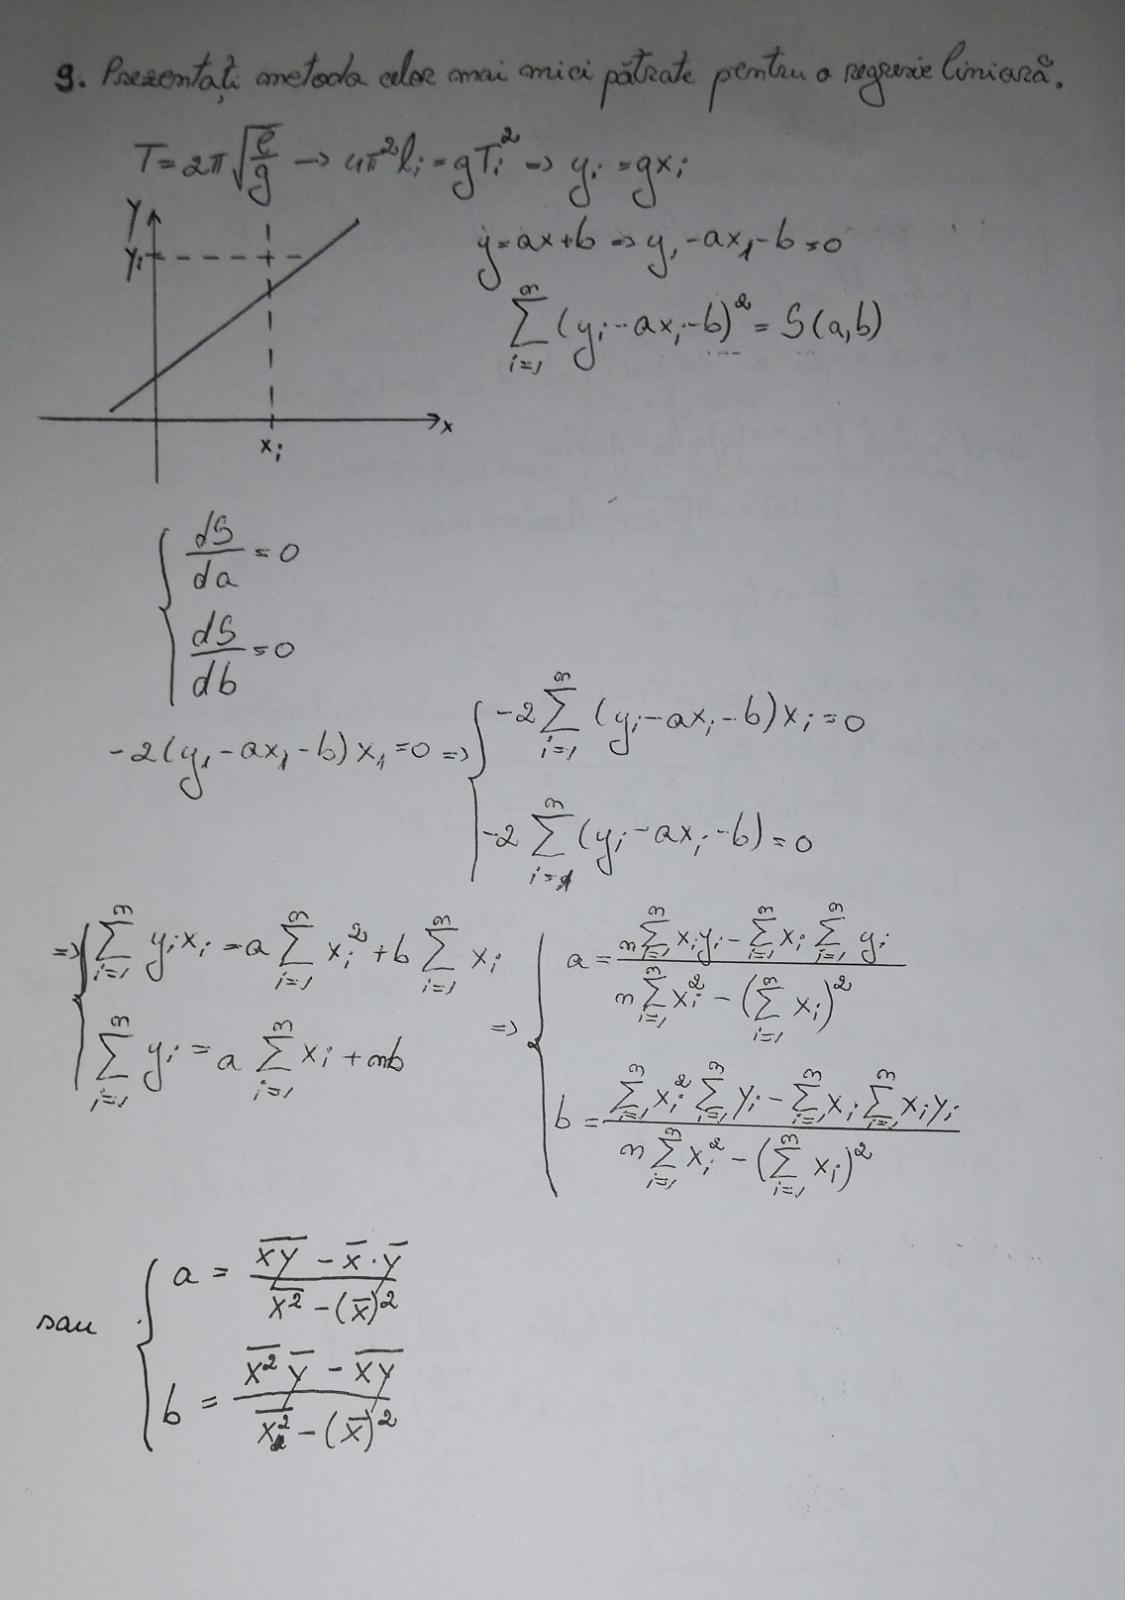 9. Prezentați metoda celor mai mici pătrate pentru o regresie liniară.
T = 2π√(l/g) → 4π²l_i = gT_i² => y_i = gx_i
y
y_i
x_i
x
y = ax + b => y_1 - ax_1 - b = 0
∑_{i=1}^{n} (y_i - ax_i - b)² = S(a,b)
{ dS/da = 0
dS/db = 0
-2(y_1 - ax_1 - b)x_1 = 0 => { -2 ∑_{i=1}^{n} (y_i - ax_i - b)x_i = 0
-2 ∑_{i=1}^{n} (y_i - ax_i - b) = 0
=> { ∑_{i=1}^{n} y_i x_i = a ∑_{i=1}^{n} x_i² + b ∑_{i=1}^{n} x_i
∑_{i=1}^{n} y_i = a ∑_{i=1}^{n} x_i + nb
=> { a = (n ∑_{i=1}^{n} x_i y_i - ∑_{i=1}^{n} x_i ∑_{i=1}^{n} y_i) / (n ∑_{i=1}^{n} x_i² - (∑_{i=1}^{n} x_i)²)
b = (∑_{i=1}^{n} x_i² ∑_{i=1}^{n} y_i - ∑_{i=1}^{n} x_i ∑_{i=1}^{n} x_i y_i) / (n ∑_{i=1}^{n} x_i² - (∑_{i=1}^{n} x_i)²)
sau { a = (x̅y̅ - x̅ · y̅) / (x̅²̅ - (x̅)²)
b = (x̅²̅ y̅ - x̅y̅) / (x̅²̅ - (x̅)²)